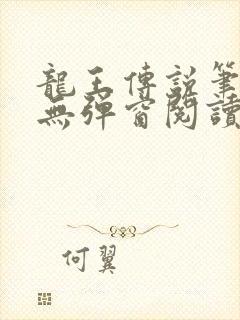 龍王傳說筆
無彈窗閱讀
何翼